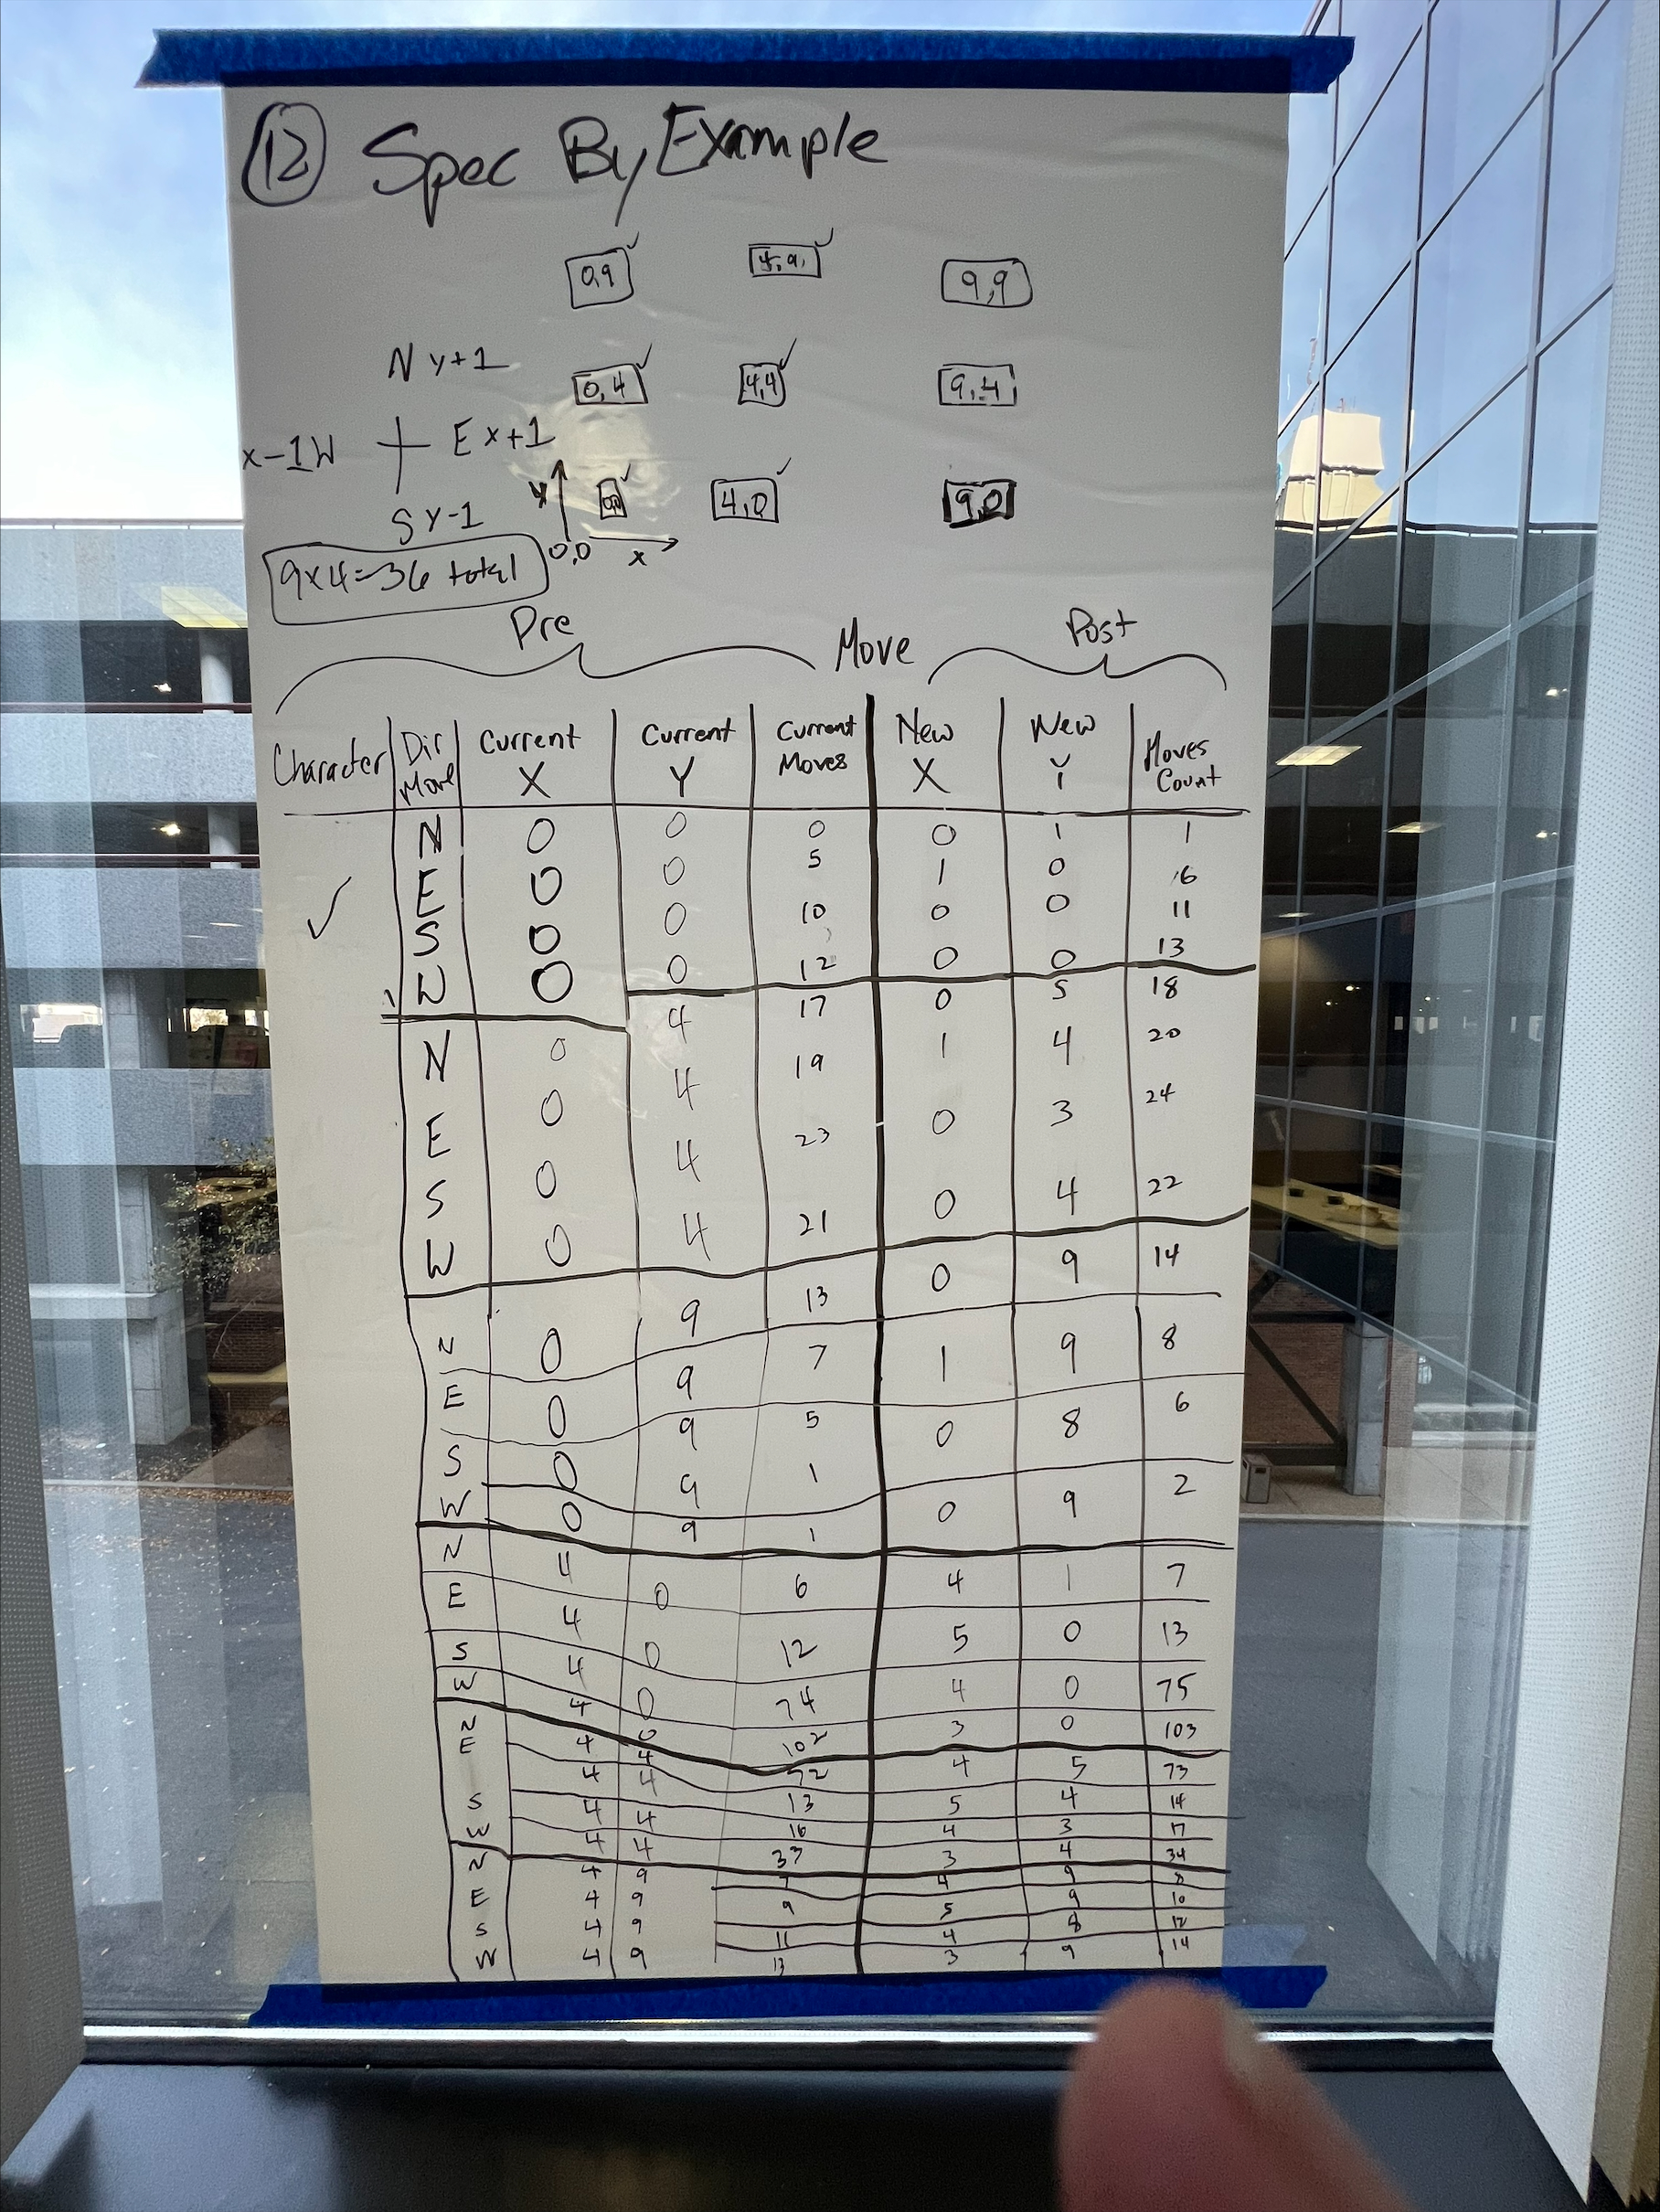 12 Spec By Example
0,9 4,9 9,9
N y+1
0,4 4,4 9,4
x-1 W E x+1
y 0,0 4,0 9,0
S y-1
0,0 x
9x4=36 total
Pre Move Post
Character Dir Move Current X Current Y Current Moves New X New Y Moves Count
N 0 0 0 0 1 1
E 0 0 5 1 0 6
S 0 0 10 0 0 11
W 0 0 12 0 0 13
N 0 4 17 0 5 18
E 0 4 19 1 4 20
S 0 4 23 0 3 24
W 0 4 21 0 4 22
N 0 9 13 0 9 14
E 0 9 7 1 9 8
S 0 9 5 0 8 6
W 0 9 1 0 9 2
N 4 9 1
E 4 0 6 4 1 7
S 4 0 12 5 0 13
W 4 0 74 4 0 75
N 4 0 102 3 0 103
E 4 4 72 4 5 73
4 4 13 5 4 14
S 4 4 16 4 3 17
W 4 4 33 3 4 34
N 4 9 7 4 9 8
E 4 9 9 5 9 10
S 4 9 11 4 8 12
W 4 9 13 3 9 14